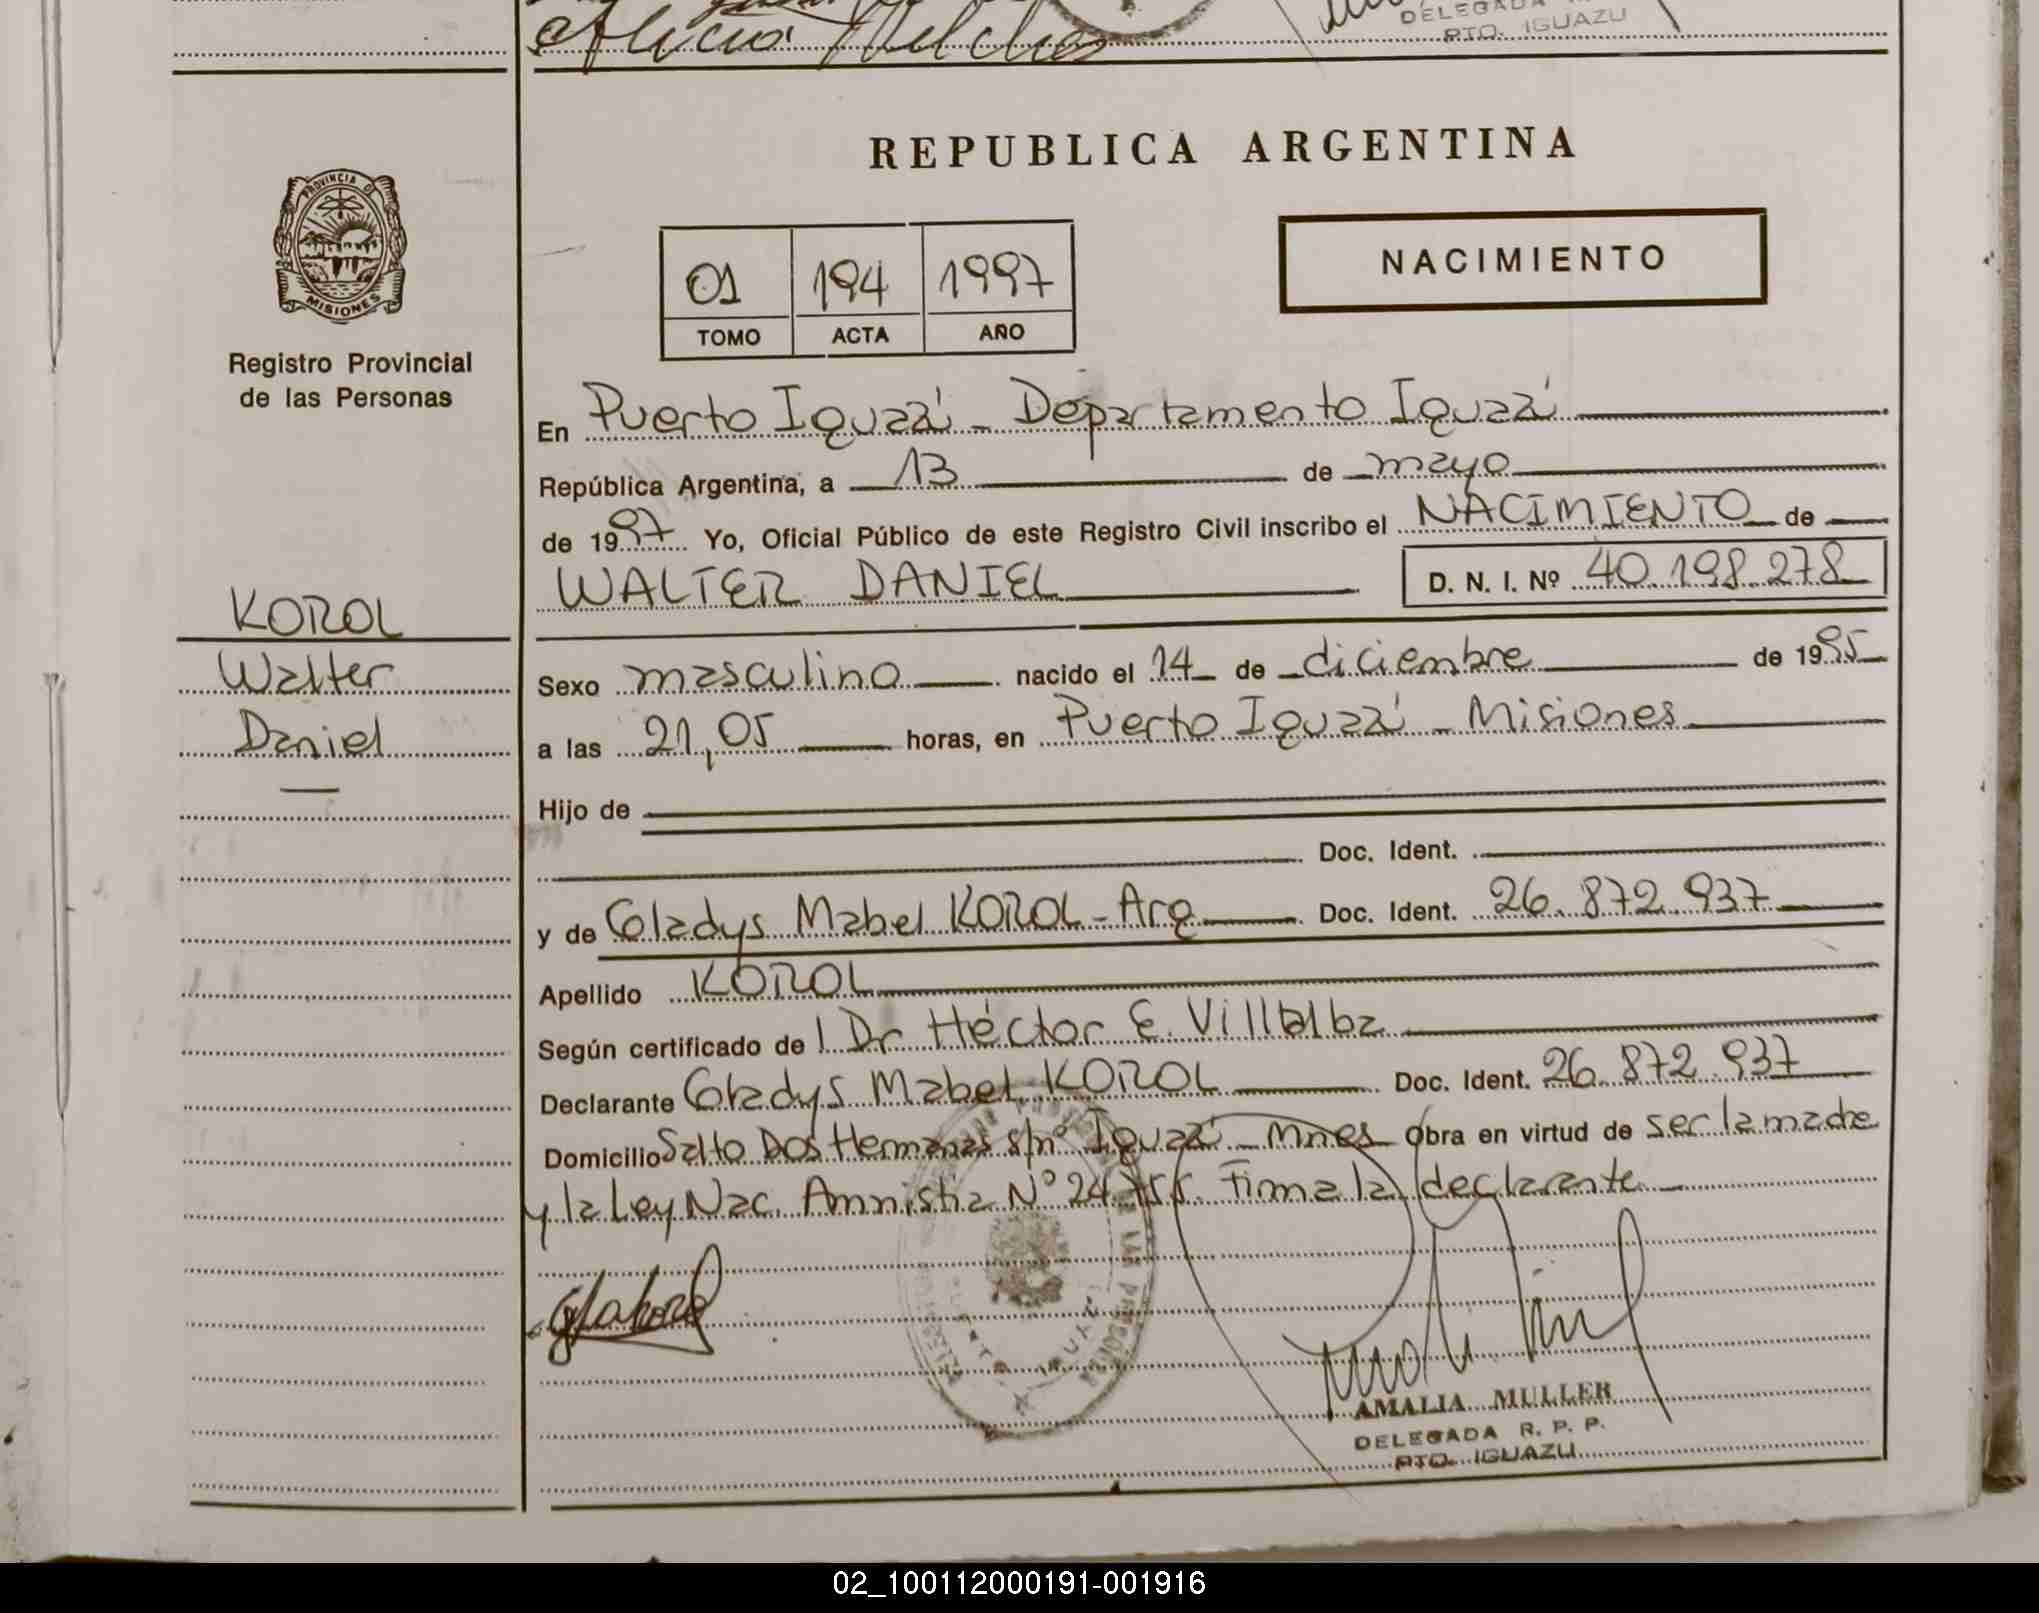 DELEGADA
PTO. IGUAZU
REPUBLICA ARGENTINA
PROVINCIA D
MISIONES
Registro Provincial
de las Personas
01 194 1997
TOMO ACTA AÑO
NACIMIENTO
En Puerto Iguazú - Departamento Iguazú
República Argentina, a 13 de mayo
de 1997 Yo, Oficial Público de este Registro Civil inscribo el NACIMIENTO de
WALTER DANIEL D. N. I. Nº 40.198.278
KOROL
Walter
Daniel
Sexo masculino nacido el 14 de diciembre de 1995
a las 21,05 horas, en Puerto Iguazú - Misiones
Hijo de
Doc. Ident.
y de Gladys Mabel KOROL - Arg Doc. Ident. 26.872.937
Apellido KOROL
Según certificado de l Dr Héctor E. Villalba
Declarante Gladys Mabel KOROL Doc. Ident. 26.872.937
Domicilio Salto Dos Hermanas s/nº Iguazú - Mnes Obra en virtud de ser la madre
y la Ley Nac. Amnistia Nº 24.755. Firma la declarante
AMALIA MULLER
DELEGADA R. P. P.
PTO. IGUAZU
02_100112000191-001916